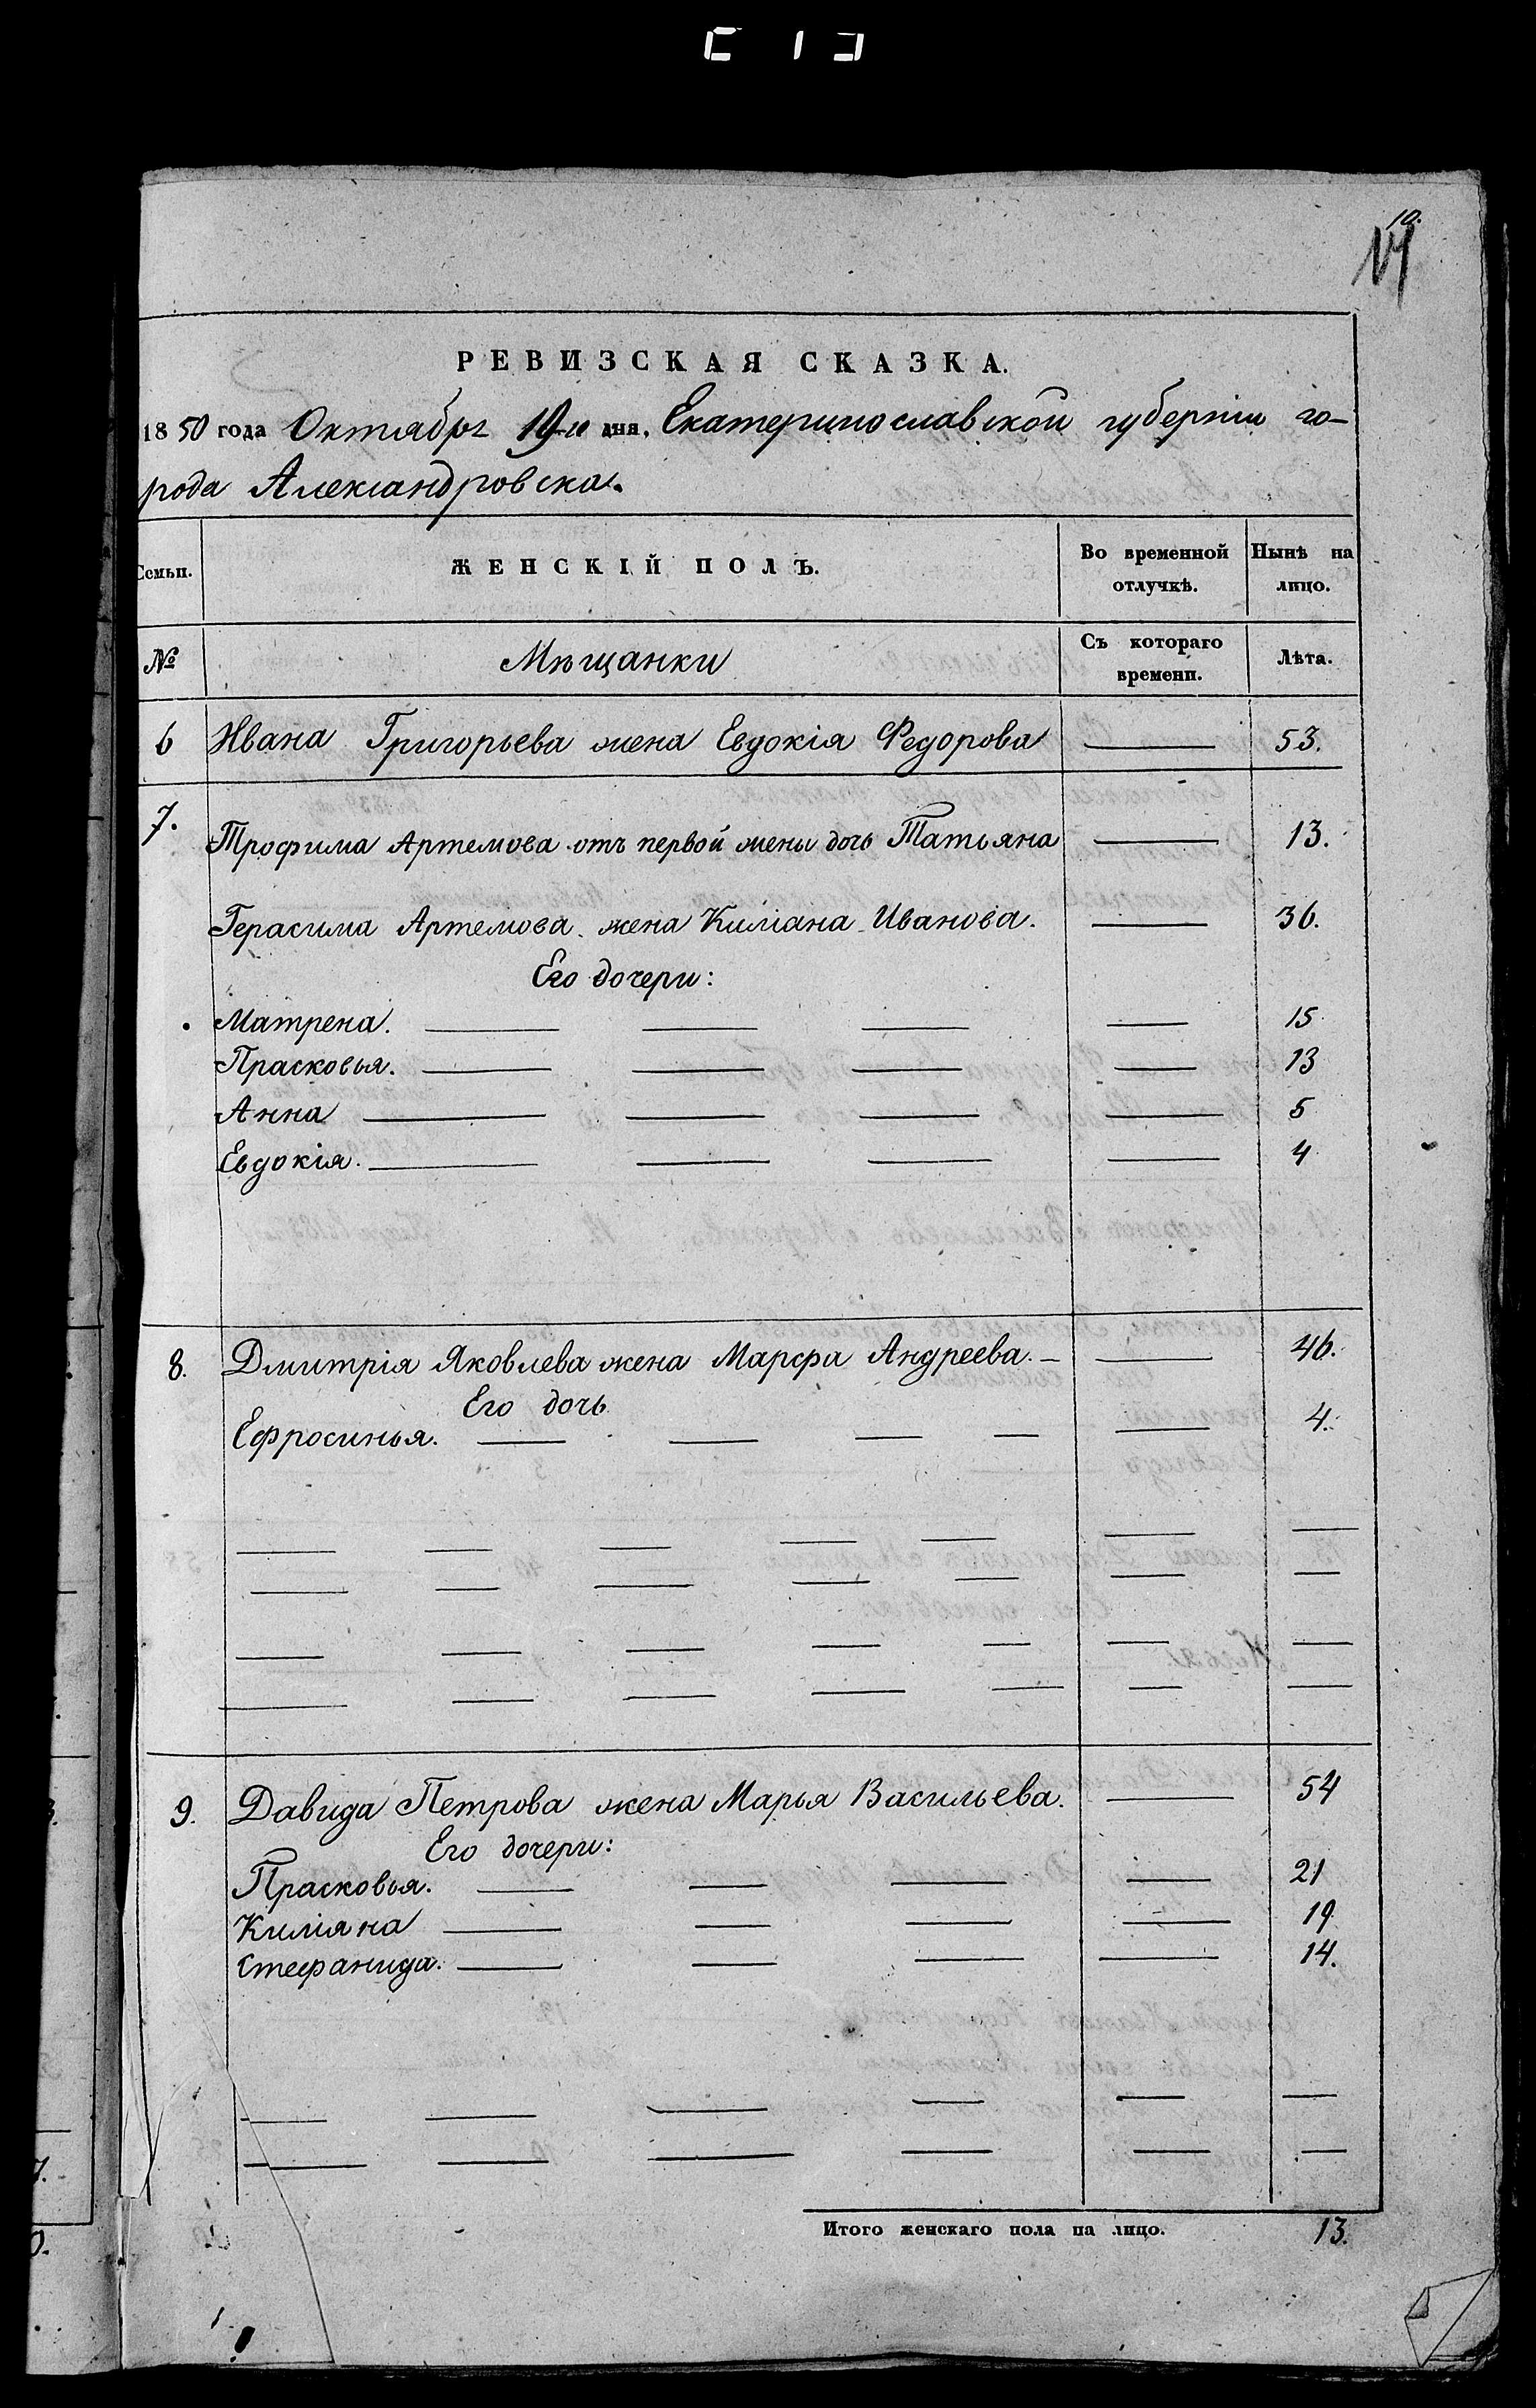 10.
РЕВИЗСКАЯ СКАЗКА.
1850 года Октября 19го дня, Екатеринославской губерніи го-
рода Александровска.
Семьи. ЖЕНСКІЙ ПОЛЪ. Во временной отлучкѣ. Нынѣ на лицо.
№ Мѣщанки Съ котораго времени. Лѣта.
6 Ивана Григорьева жена Евдокія Федорова — 53.
7. Трофима Артемова отъ первой жены дочь Татьяна — 13.
Герасима Артемова жена Киліана Иванова. — 36.
Его дочери:
Матрена. — — — — 15
Прасковья. — — — — 13
Анна — — — — 5
Евдокія. — — — — 4
8. Дмитрія Яковлева жена Марфа Андреева. — — 46.
Его дочь
Ефросинья. — — — — — 4.
9. Давида Петрова жена Марья Васильева. — 54
Его дочери:
Прасковья. — — — — 21
Киліяна — — — — 19
Стефанида. — — — — 14.
Итого женскаго пола на лицо. 13.